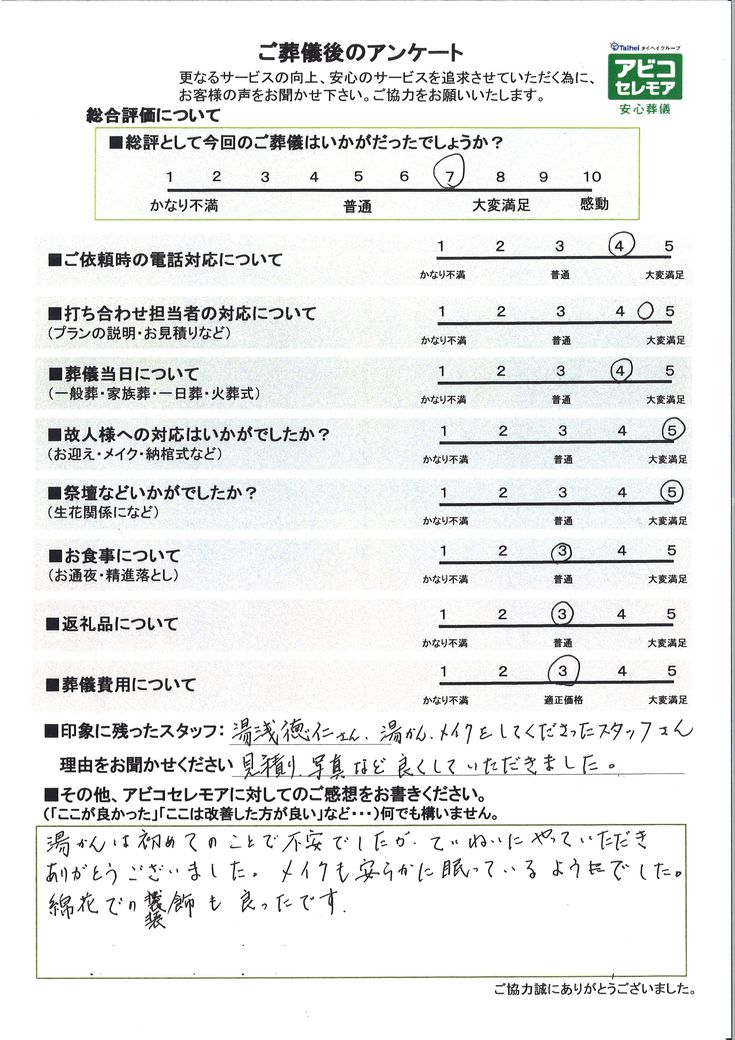 ご葬儀後のアンケート
Taihei タイヘイグループ
アビコ
セレモア
安心葬儀
更なるサービスの向上、安心のサービスを追求させていただく為に、
お客様の声をお聞かせ下さい。ご協力をお願いいたします。
総合評価について
■総評として今回のご葬儀はいかがだったでしょうか?
1 2 3 4 5 6 7 8 9 10
かなり不満 普通 大変満足 感動
■ご依頼時の電話対応について
1 2 3 4 5
かなり不満 普通 大変満足
■打ち合わせ担当者の対応について
(プランの説明・お見積りなど)
1 2 3 4 5
かなり不満 普通 大変満足
■葬儀当日について
(一般葬・家族葬・一日葬・火葬式)
1 2 3 4 5
かなり不満 普通 大変満足
■故人様への対応はいかがでしたか?
(お迎え・メイク・納棺式など)
1 2 3 4 5
かなり不満 普通 大変満足
■祭壇などいかがでしたか?
(生花関係になど)
1 2 3 4 5
かなり不満 普通 大変満足
■お食事について
(お通夜・精進落とし)
1 2 3 4 5
かなり不満 普通 大変満足
■返礼品について
1 2 3 4 5
かなり不満 普通 大変満足
■葬儀費用について
1 2 3 4 5
かなり不満 適正価格 大変満足
■印象に残ったスタッフ: 湯浅徳仁さん、湯かん、メイクをしてくださったスタッフさん
理由をお聞かせください 見積り、写真など良くしていただきました。
■その他、アビコセレモアに対してのご感想をお書きください。
(「ここが良かった」「ここは改善した方が良い」など・・・)何でも構いません。
湯かんは初めてのことで不安でしたが、ていねいにやっていただき
ありがとうございました。メイクも安らかに眠っているようでした。
綿花での装飾も良ったです.
ご協力誠にありがとうございました。